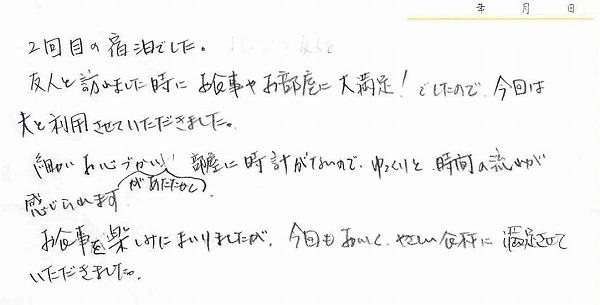 年 月 日
2回目の宿泊でした。
友人と訪れました時にお食事やお部屋に大満足!でしたので、今回は
夫と利用させていただきました。
細かいお心づかい 部屋に時計がないので、ゆっくりと時間の流れが
があたたかく
感じられます
お食事を楽しみにまいりましたが、今回もおいしく、やさしい 満足させて
いただきました。